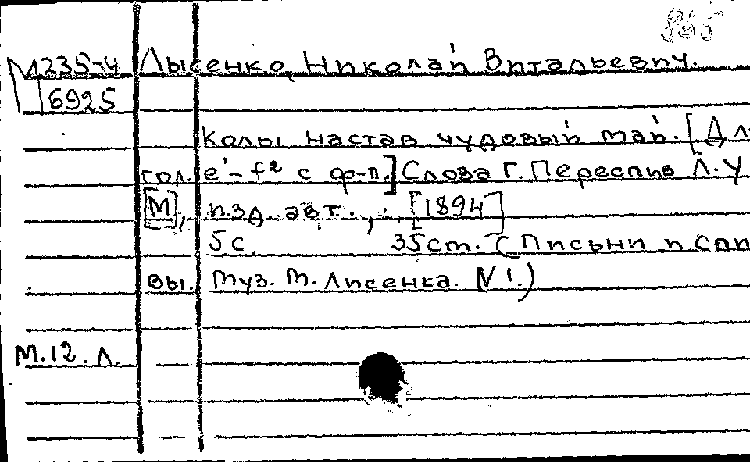 865
М235-4 Лысенко, Николай Витальевич.
6925
Колы настав чудовый май. [Дл
гол. e¹-f² с ф-п.] Слова Г. Переспив Л. У
[М], изд. авт., [1894]
5 с. 35 ст. (Письни и спи
вы. Муз. М. Лисенка. N 1.)
М.12.Л.